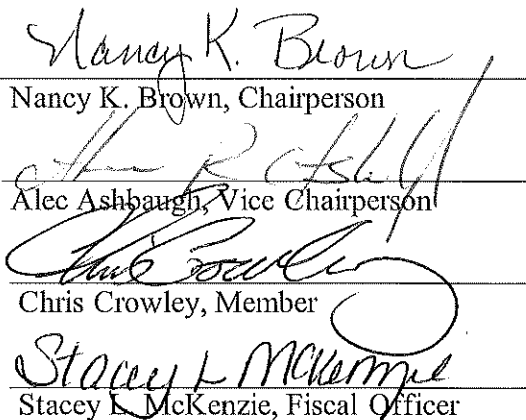 Nancy K. Brown
Nancy K. Brown, Chairperson
Alec Ashbaugh, Vice Chairperson
Chris Crowley
Chris Crowley, Member
Stacey L McKenzie
Stacey L. McKenzie, Fiscal Officer